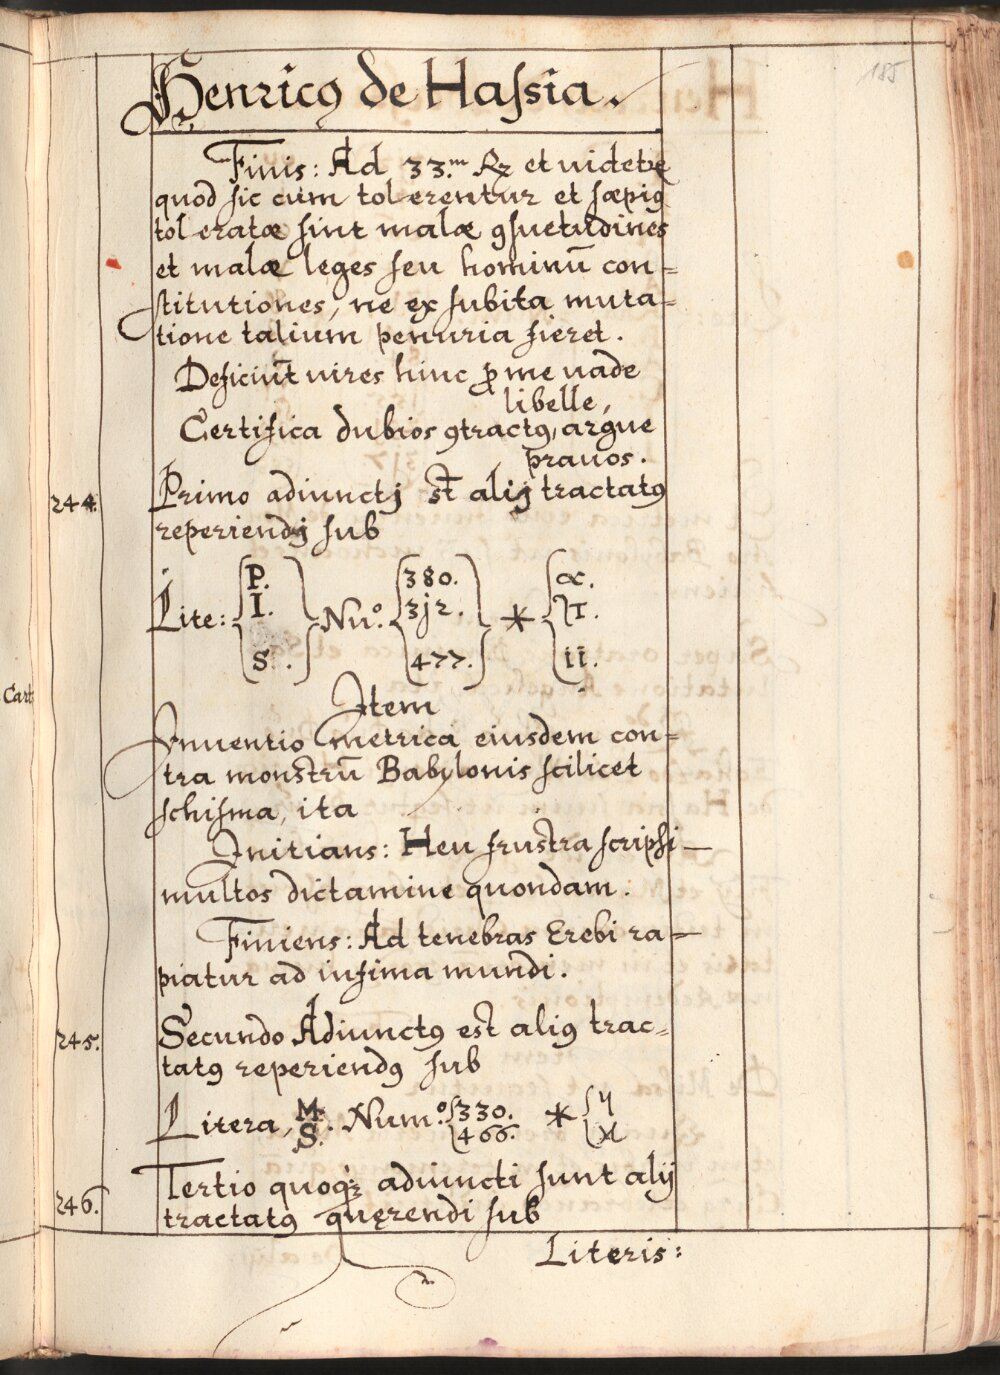 185
Henricꝯ de Haſsia.
Finis: Ad 33.m Rꝫ et uidetꝛ
quod ſic cum tolerentur et ſæpiꝯ
toleratæ ſint malæ ꝯſuetudines
et malæ leges ſeu hominū con=
ſtitutiones, ne ex ſubita muta=
tione talium penuria fieret.
Deficiūt uires hinc ꝓ me uade
libelle,
Certifica dubios ꝯtractꝯ, argue
prauos.
244. Primo adiunctj st̄ alij tractatꝯ
reperiendj ſub
Lite: P. I. S. Nu.o 380. 3j2. 477. * α. I. ii.
Item
Inuentio metrica eiusdem con=
tra monstrū Babylonis ſcilicet
ſchiſma, ita
Initians: Heu frustra ſcripſi
multos dictamine quondam.
Finiens: Ad tenebras Erebi ra=
piatur ad infima mundi.
245. Secundo Adiunctꝯ est aliꝯ trac=
tatꝯ reperiendꝯ ſub
Litera, M. S. Num.o 330. 466. * y
246. Tertio quoqꝫ adiuncti ſunt alij
tractatꝯ quęrendi ſub
Literis: